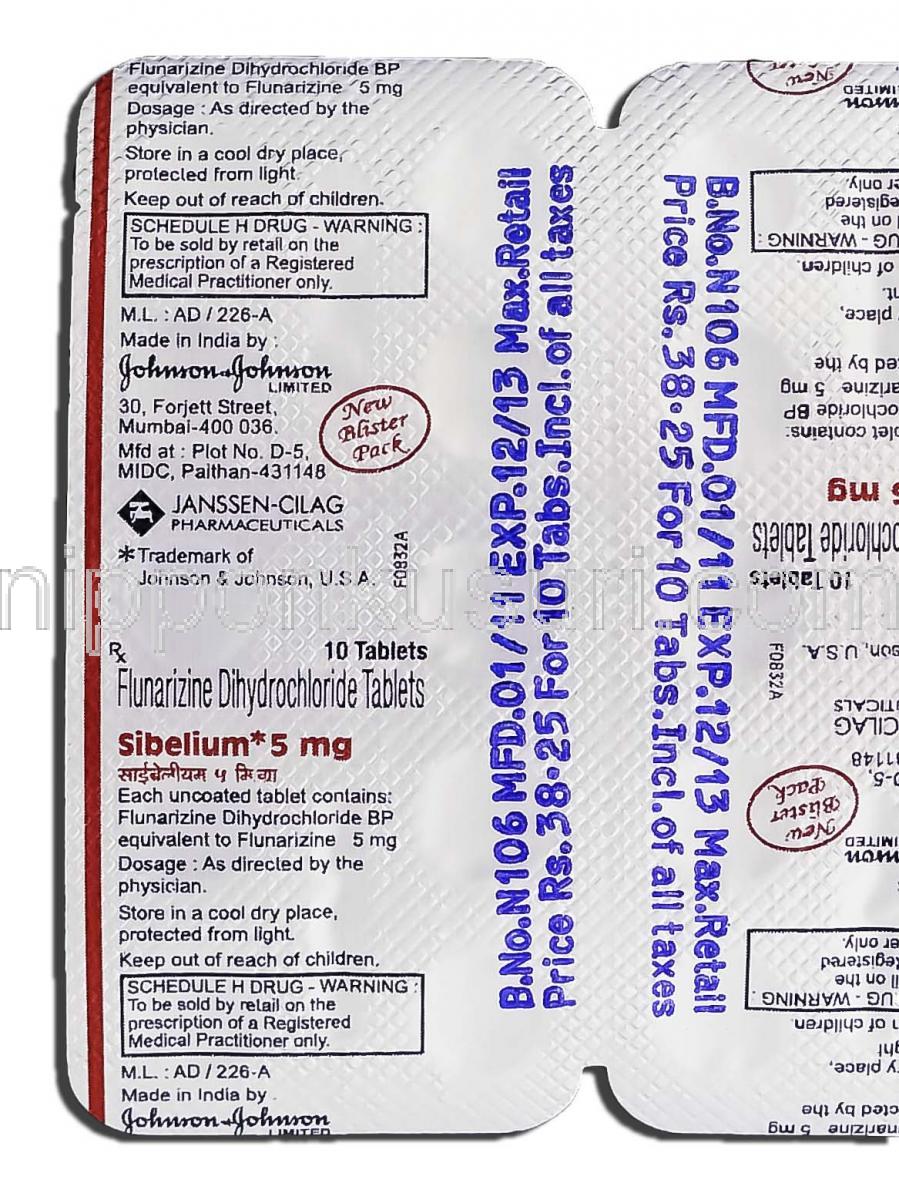 Flunarizine Dihydrochloride BP
equivalent to Flunarizine 5 mg
Dosage : As directed by the
physician.
Store in a cool dry place,
protected from light.
Keep out of reach of children.
SCHEDULE H DRUG - WARNING :
To be sold by retail on the
prescription of a Registered
Medical Practitioner only.
M.L. : AD / 226-A
Made in India by :
Johnson & Johnson
LIMITED
30, Forjett Street,
Mumbai-400 036.
Mfd at : Plot No. D-5,
MIDC, Paithan-431148
New
Blister
Pack
JANSSEN-CILAG
PHARMACEUTICALS
*Trademark of
Johnson & Johnson, U.S.A.
F0832A
nipponkusuri.com
Rx
10 Tablets
Flunarizine Dihydrochloride Tablets
Sibelium* 5 mg
साईबेलीयम ५ मि ग्रा
Each uncoated tablet contains:
Flunarizine Dihydrochloride BP
equivalent to Flunarizine 5 mg
Dosage : As directed by the
physician.
Store in a cool dry place,
protected from light.
Keep out of reach of children.
SCHEDULE H DRUG - WARNING :
To be sold by retail on the
prescription of a Registered
Medical Practitioner only.
M.L. : AD / 226-A
Made in India by
Johnson & Johnson
LIMITED
B.No.N106 MFD.01/11 EXP.12/13 Max.Retail
Price Rs.38.25 For 10 Tabs.Incl.of all taxes
B.No.N106 MFD.01/11 EXP.12/13 Max.Retail
Price Rs.38.25 For 10 Tabs.Incl.of all taxes
5 mg
10 Tablets
F0832A
New
Blister
Pack